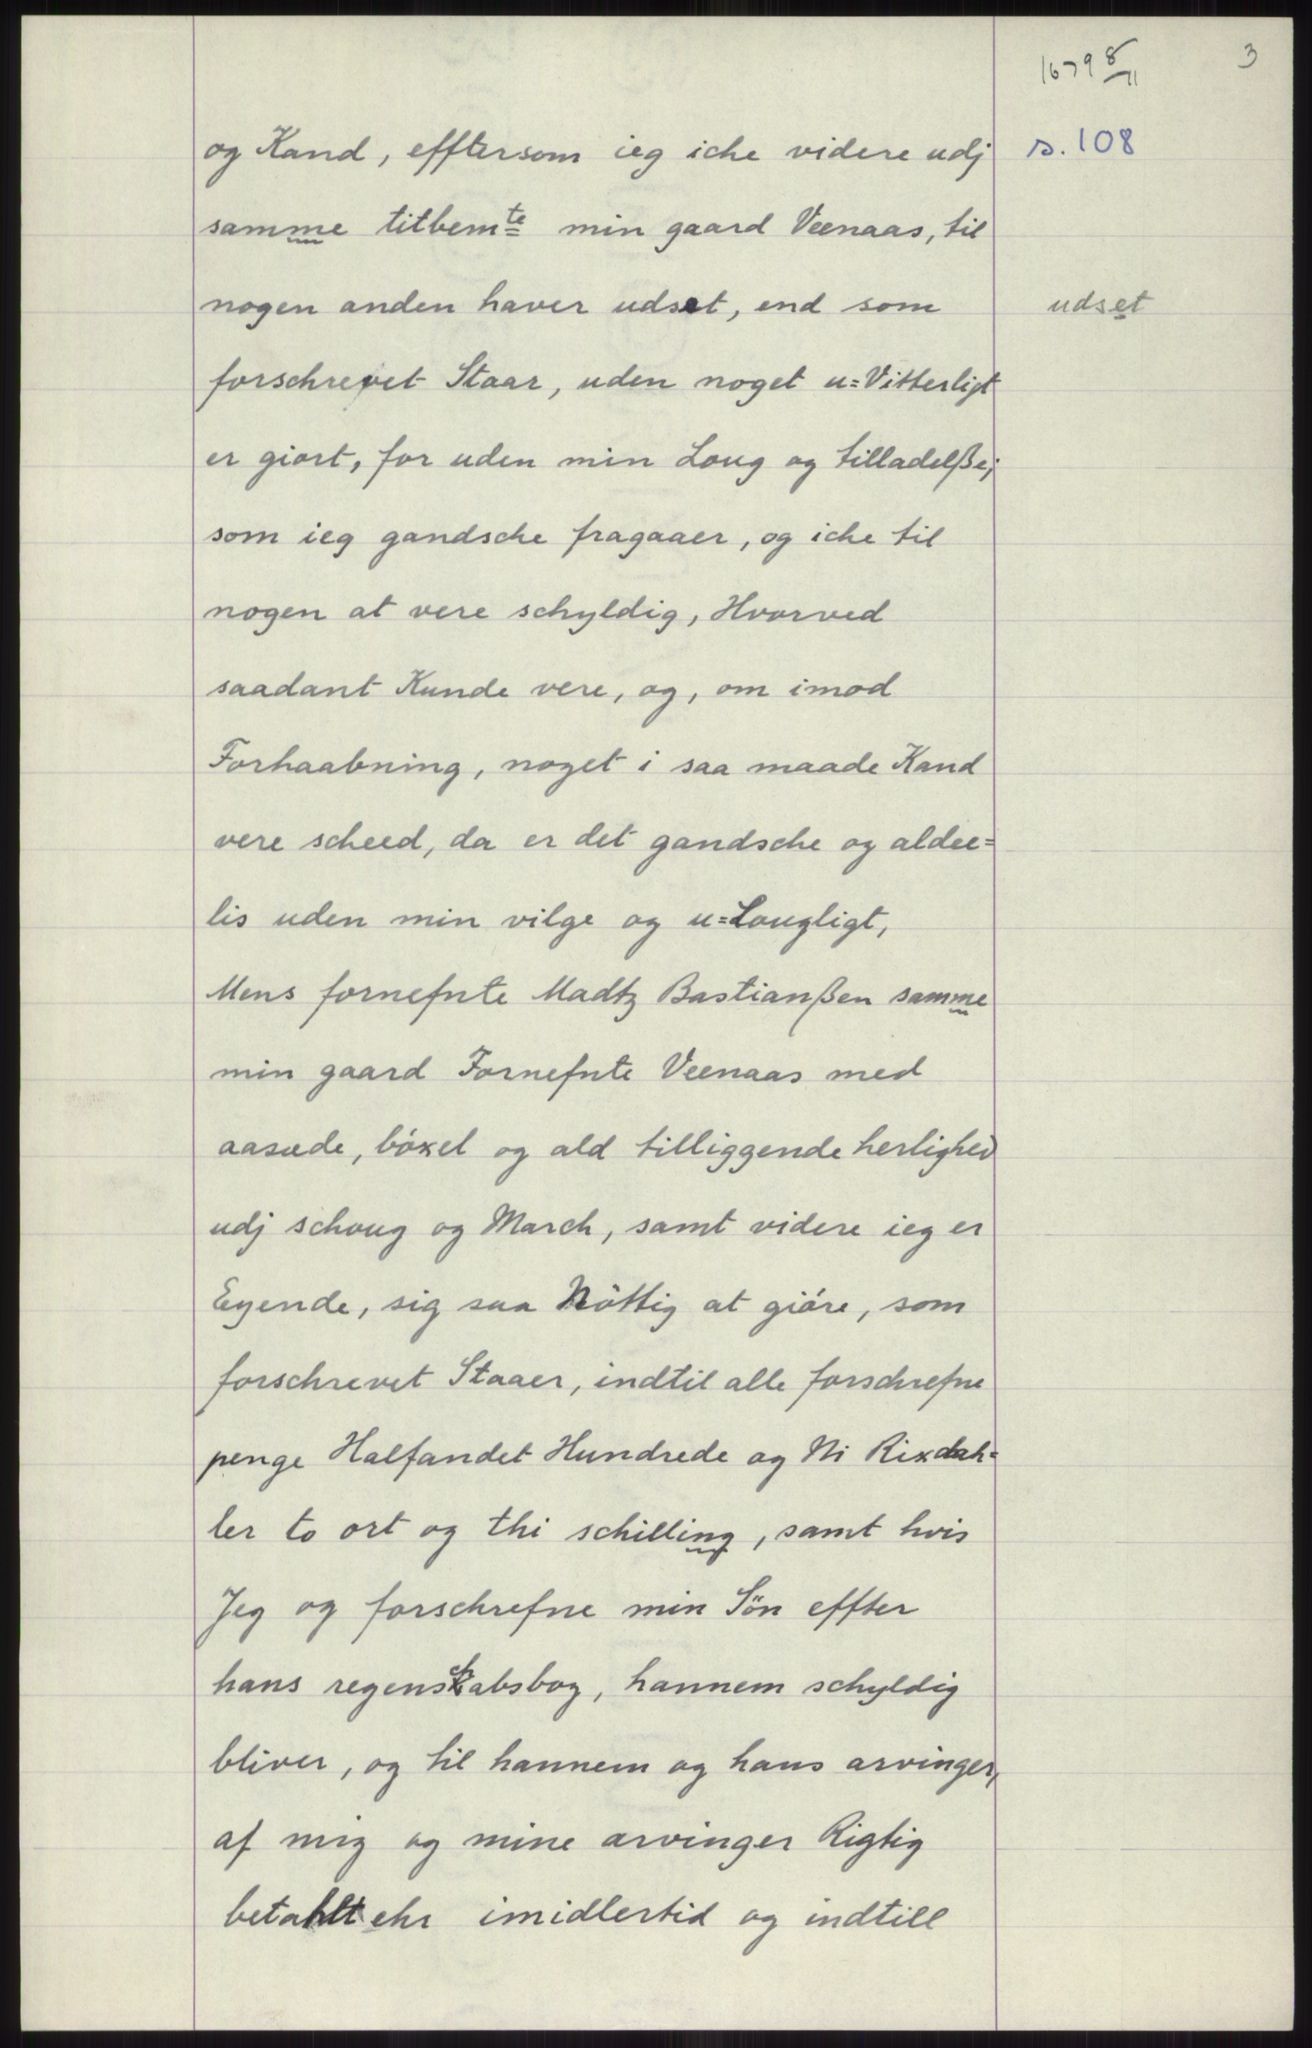 1679 8/11
3
og Kand, efftersom ieg iche videre udj
s. 108
samme titbemte min gaard Veenaas, til
nogen anden haver udset, end som
udset
forschrevet Staar, uden noget u=Vitterligt
er giort, for uden min Loug og tilladelße;
som ieg gandsche fragaaer, og iche til
nogen at vere schyldig, Hvorved
saadant Kunde vere, og, om imod
Forhaabning, noget i saa maade Kand
vere scheed, da er det gandsche og aldee=
lis uden min vilge og u=Lougligt,
Mens fornefnte Madtz Bastianßen samme
min gaard Fornefnte Veenaas med
aasæde, böxel og ald tilliggende herlighed
udj schoug og March, samt videre ieg er
Eyende, sig saa Nöttig at giöre, som
forschrevet Staaer, indtil alle forschrefne
penge Halfandet Hundrede og Ni Rixdah=
ler to ort og thi schilling, samt hvis
Jeg og forschrefne min Sön effter
hans regenskabsbog, hannem schyldig
bliver, og til hannem og hans arvinger,
af mig og mine arvinger Rigtig
betahlt ehr imidlertid og indtill